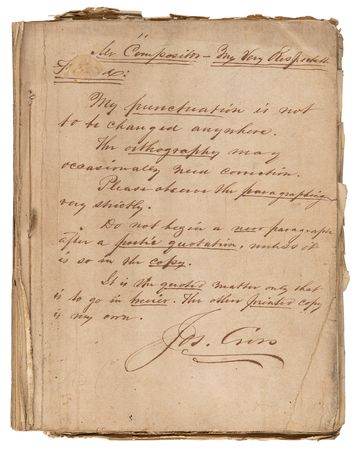 Mr Compositor – My Very Respected
My punctuation is not
to be changed anywhere.
The orthography may
occasionally need correction.
Please observe the paragraphing
very strictly.
Do not begin a new paragraph
after a poetic quotation, unless it
is so in the copy.
It is the quoted matter only that
is to go in brevier. The other printed copy
is my own.
Jos.